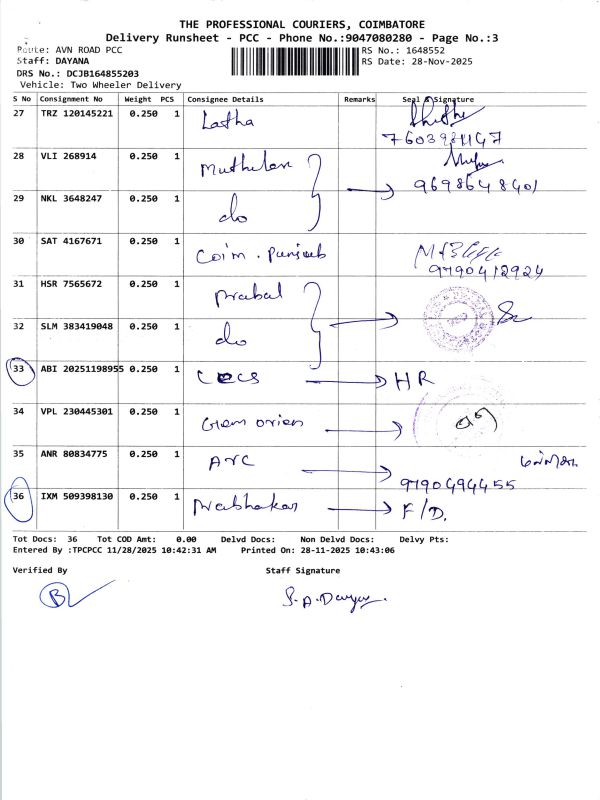 THE PROFESSIONAL COURIERS, COIMBATORE
Delivery Runsheet - PCC - Phone No.:9047080280 - Page No.:3
Route: AVN ROAD PCC RS No.: 1648552
Staff: DAYANA RS Date: 28-Nov-2025
DRS No.: DCJB164855203
Vehicle: Two Wheeler Delivery
S No Consignment No Weight PCS Consignee Details Remarks Seal & Signature
27 TRZ 120145221 0.250 1 Latha
28 VLI 268914 0.250 1 Muthulan
9698648401
29 NKL 3648247 0.250 1 do
30 SAT 4167671 0.250 1 Coim. Punjab
9790412924
31 HSR 7565672 0.250 1 Prabal
32 SLM 383419048 0.250 1 do
33 ABI 20251198955 0.250 1 CECS HR
34 VPL 230445301 0.250 1 Gem orien
35 ANR 80834775 0.250 1 AVC
9790494455
36 IXM 509398130 0.250 1 Prabhakar F/D.
Tot Docs: 36 Tot COD Amt: 0.00 Delvd Docs: Non Delvd Docs: Delvy Pts:
Entered By :TPCPCC 11/28/2025 10:42:31 AM Printed On: 28-11-2025 10:43:06
Verified By Staff Signature
B S.A.Dayana.